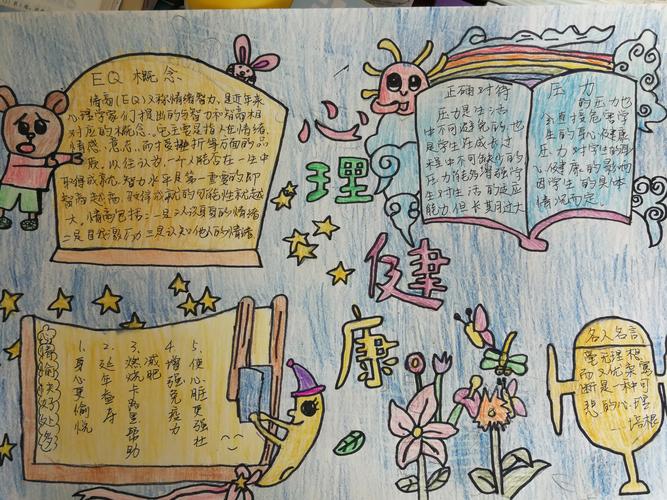 EQ 概念
情商(EQ)又称情绪智力,是近年来
心理学家们提出的与智力和智商相
对应的概念。它主要是指人在情绪、
情感、意志、耐受挫折等方面的品
质,以往认为,一个人能否在一生中
取得成就,智力水平是第一重要的,即
智商越高,取得成就的可能性就越
大,情商包括:一是认识自身的情绪
二是自我激励 三是认知他人的情绪
心理健康
正确对待
压力是生活
中不可避免的,也
是学生在成长过
程中不可缺少的
压力能够增强学
生对生活的适应
能力,但长期过大
压力
的压力也
会直接危害学
生的身心健康
压力对学生的身
心健康的影响
因学生的具体
情况而定。
愉快好处
1.身心更愉悦
2.延年益寿
3.燃烧卡路里帮助
减肥
4.增强免疫力
5.使心脏更强壮
名人名言
毫无理想
而又优柔寡
断是一种可
悲的心理
——培根